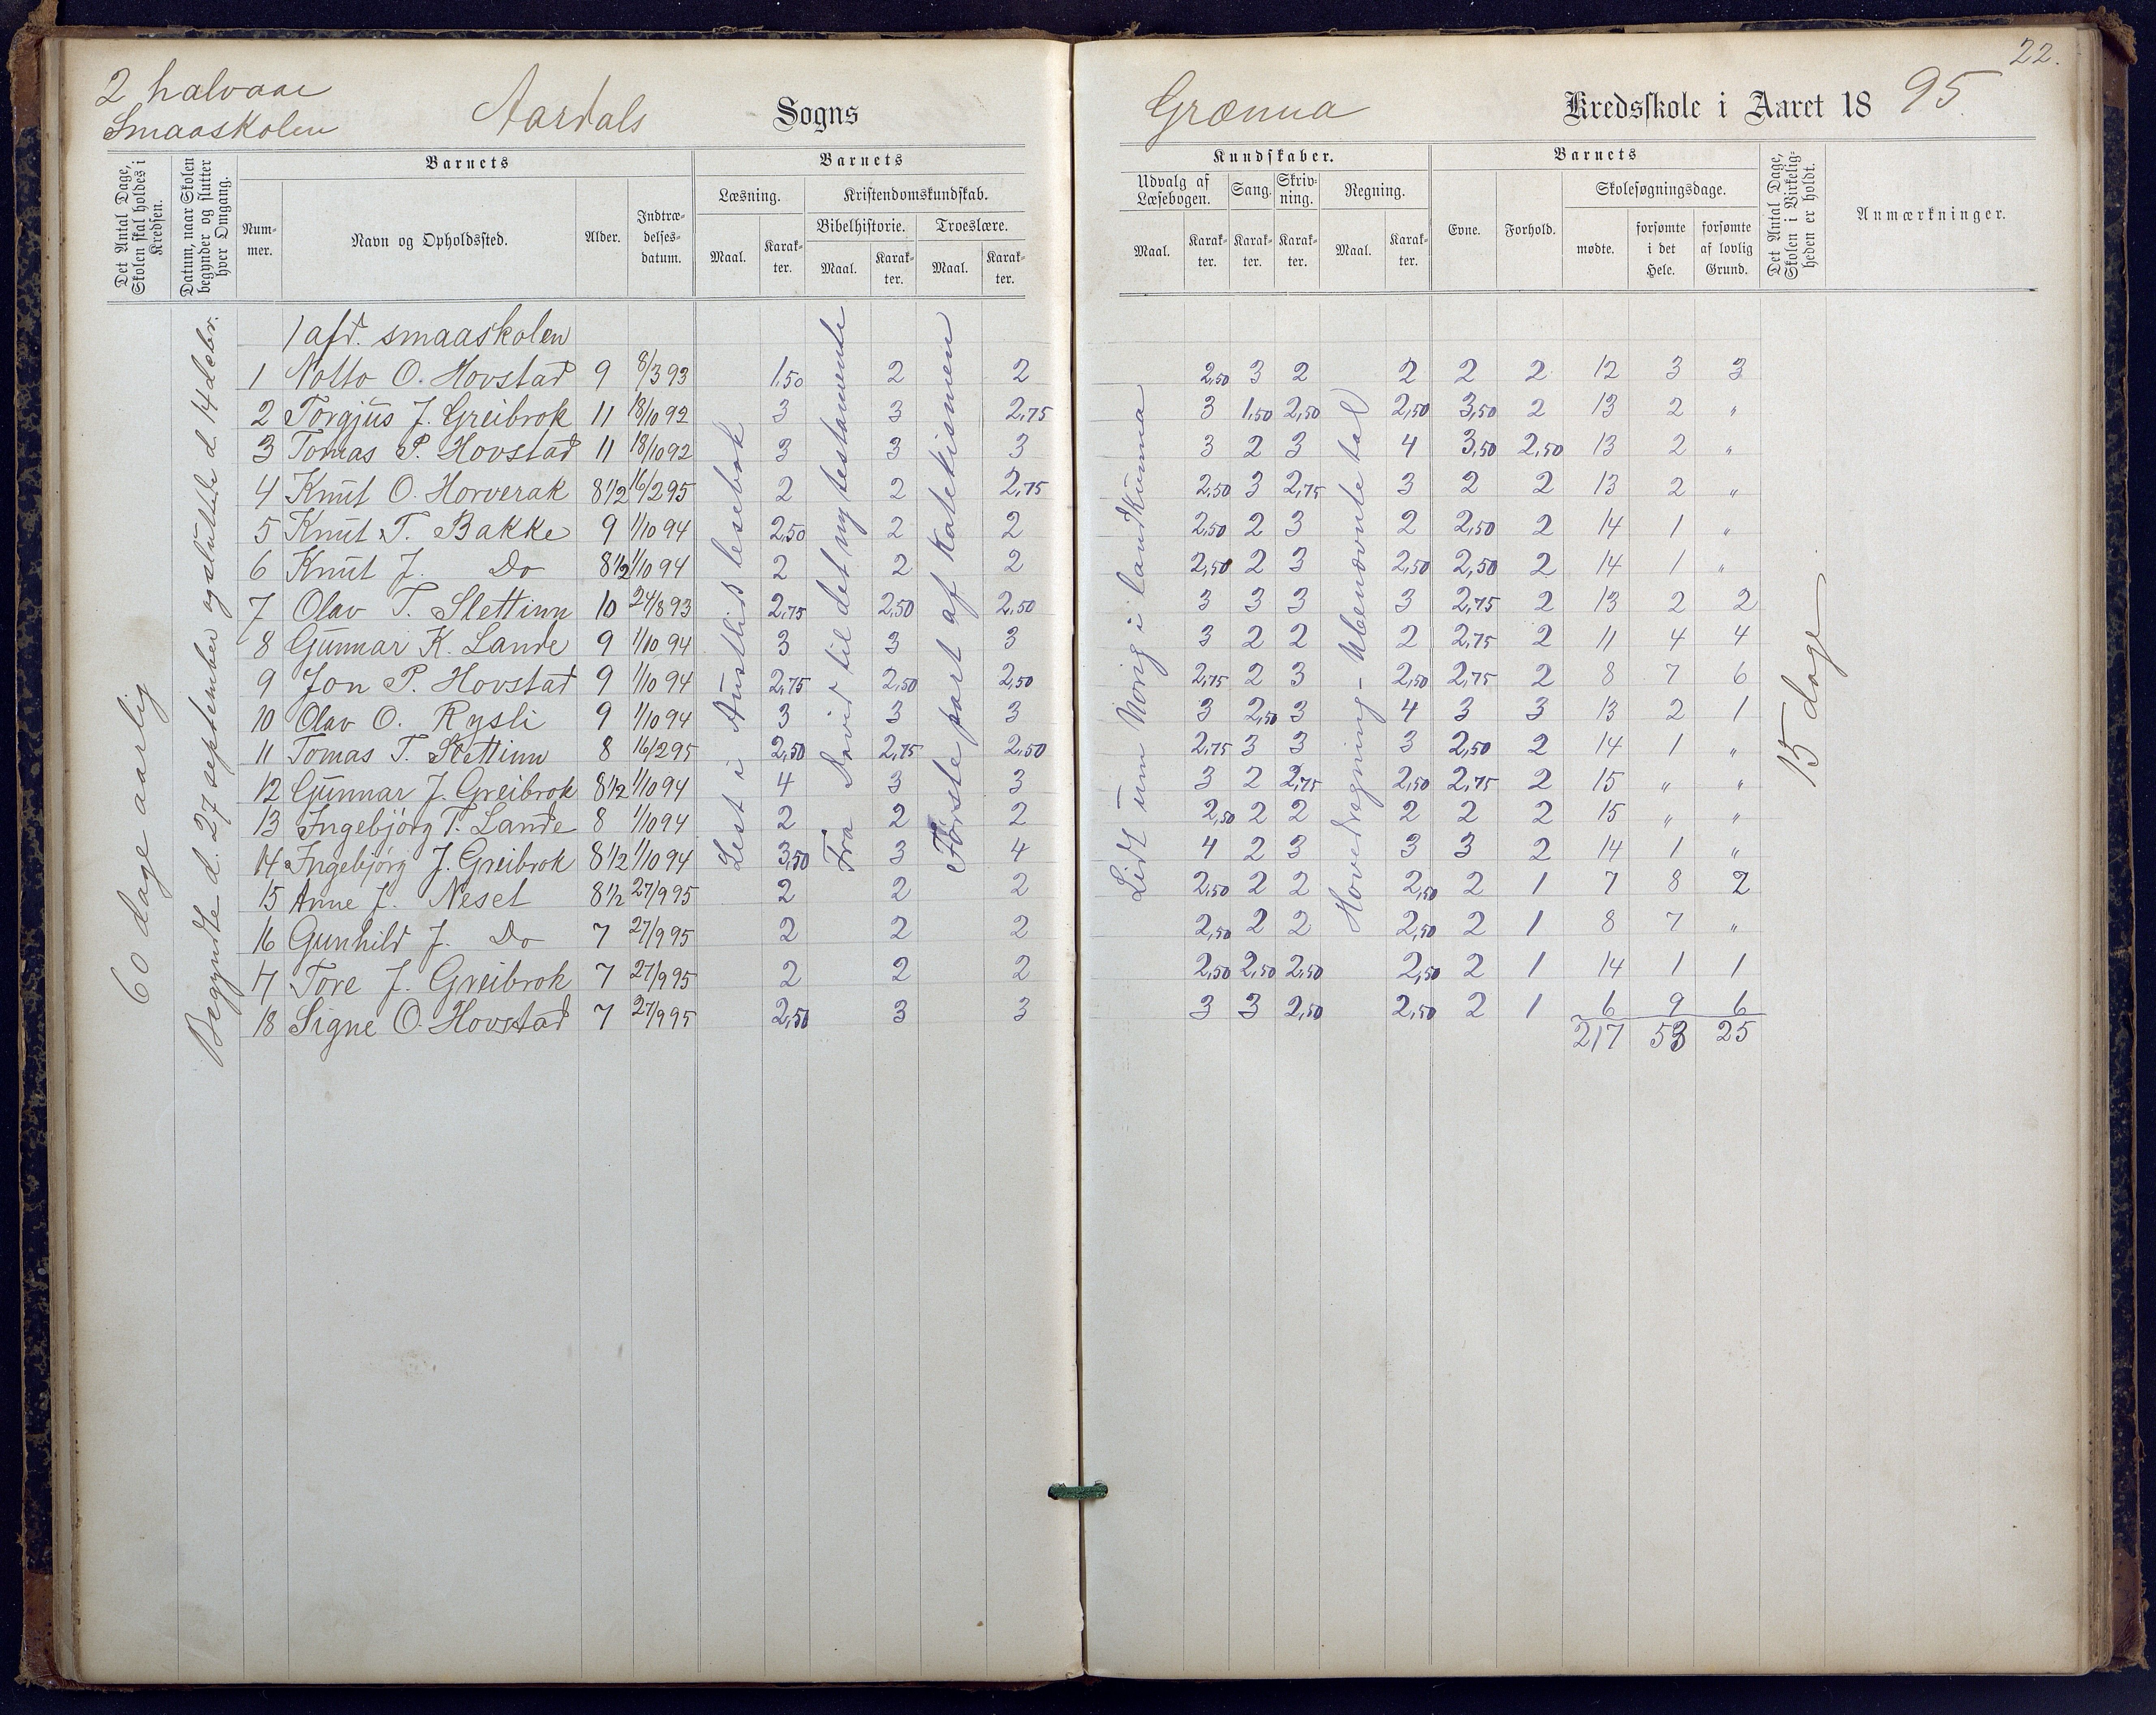 22.
2 halvaar
Smaaskolen
Aardals Sogns
Grænna Kredsskole i Aaret 1895.
Det Antal Dage, Skolen skal holdes i Kredsen.
Datum, naar Skolen begynder og slutter hver Omgang.
Barnets
Num-mer.
Navn og Opholdssted.
Alder.
Indtræ-delses-datum.
Barnets
Læsning.
Maal. Karak-ter.
Kristendomskundskab.
Bibelhistorie. Troeslære.
Maal. Karak-ter. Maal. Karak-ter.
Kundskaber.
Udvalg af Læsebogen. Sang. Skriv-ning. Regning.
Maal. Karak-ter. Karak-ter. Karak-ter. Maal. Karak-ter.
Barnets
Evne. Forhold.
Skolesøgningsdage.
mødte. forsømte i det Hele. forsømte af lovlig Grund.
Det Antal Dage, Skolen i Virkelig-heden er holdt.
Anmærkninger.
60 dage aarlig
Begyndte d. 27 september og sluttede d. 14 decbr.
Lest i Austlid lesebok
Fra David til det ny testamente
Første part af Katekismen
Lidt um Norig i landkunna
Hovedregning - Ubenævnte tal
15 dage
1 afd. smaaskolen
1 Notto O. Hovstad 9 8/3 93 1,50 2 2 2,50 3 2 2 2 2 12 3 3
2 Torgjus J. Greibrok 11 18/10 92 3 3 2,75 3 1,50 2,50 2,50 3,50 2 13 2 "
3 Tomas P. Hovstad 11 18/10 92 3 3 3 3 2 3 4 3,50 2,50 13 2 "
4 Knut O. Horverak 8 1/2 16/2 95 2 2 2,75 2,50 3 2,75 3 2 2 13 2 "
5 Knut T. Bakke 9 1/10 94 2,50 2 2 2,50 2 3 2 2,50 2 14 1 "
6 Knut J. Do 8 1/2 1/10 94 2 2 2 2,50 2 3 2,50 2,50 2 14 1 "
7 Olav T. Slettinn 10 24/8 93 2,75 2,50 2,50 3 3 3 3 2,75 2 13 2 2
8 Gunnar K. Lande 9 1/10 94 3 3 3 3 2 2 2 2,75 2 11 4 4
9 Jon P. Hovstad 9 1/10 94 2,75 2,50 2,50 2,75 2 3 2,50 2,75 2 8 7 6
10 Olav O. Rysli 9 1/10 94 3 3 3 3 2,50 3 4 3 3 13 2 1
11 Tomas T. Slettinn 8 16/2 95 2,50 2,75 2,50 2,75 3 3 3 2,50 2 14 1 "
12 Gunnar J. Greibrok 8 1/2 1/10 94 4 3 3 3 2 2,75 2,50 2,75 2 15 " "
13 Ingebjörg T. Lande 8 1/10 94 2 2 2 2,50 2 2 2 2 2 15 " "
14 Ingebjörg J. Greibrok 8 1/2 1/10 94 3,50 3 4 4 2 3 3 3 2 14 1 "
15 Anne J. Neset 8 1/2 27/9 95 2 2 2 2,50 2 2 2,50 2 1 7 8 2
16 Gunhild J. Do 7 27/9 95 2 2 2 2,50 2 2 2,50 2 1 8 7 "
17 Tore J. Greibrok 7 27/9 95 2 2 2 2,50 2,50 2,50 2,50 2 1 14 1 1
18 Signe O. Hovstad 7 27/9 95 2,50 3 3 3 3 2,50 2,50 2 1 6 9 6
217 53 25